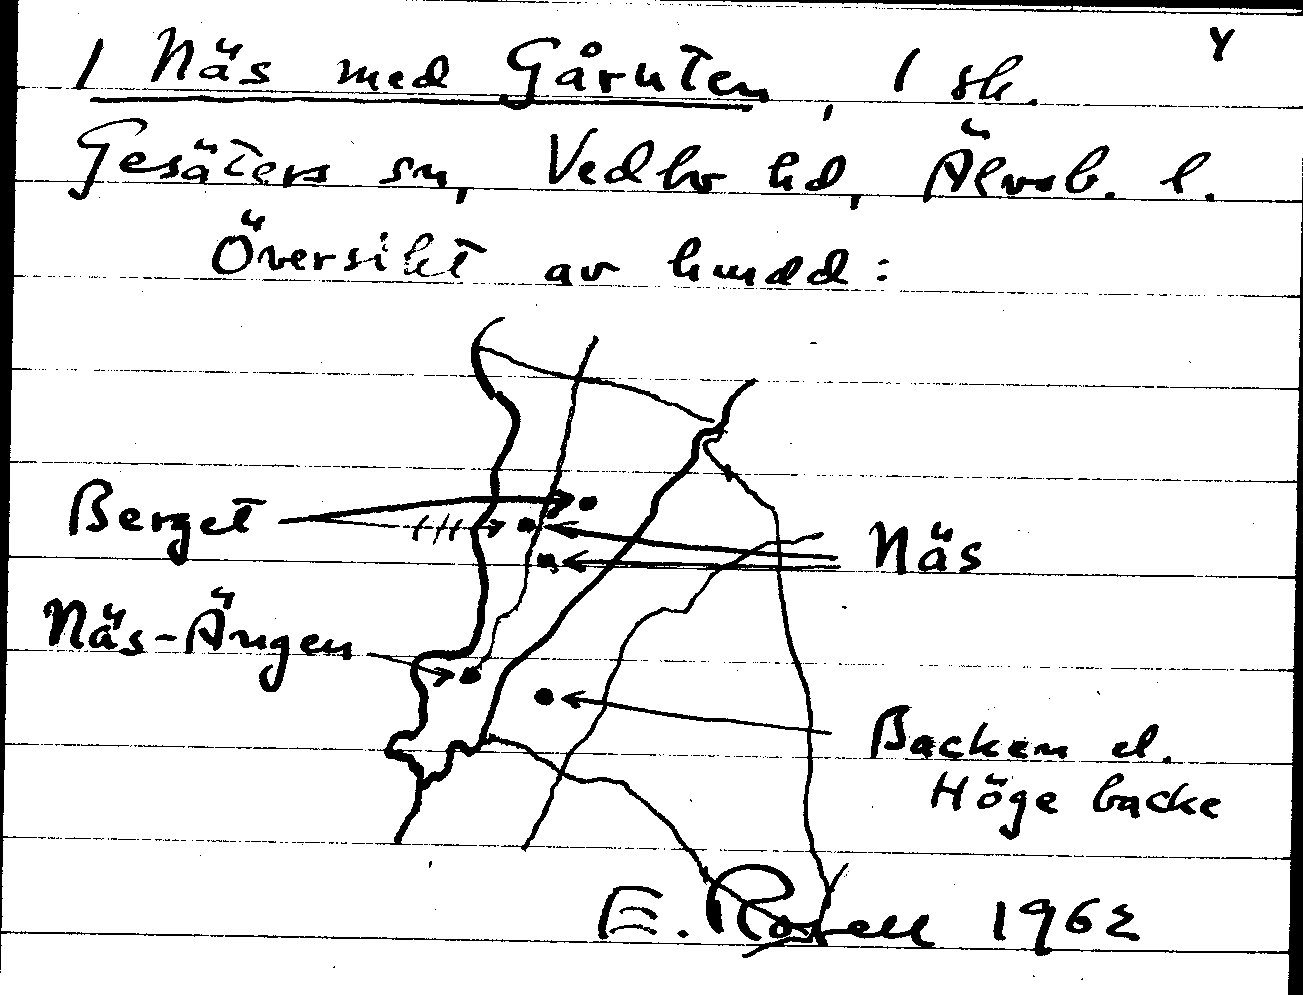 Y
1 Näs med Gåruten, 1 sk.
Gesäters sn, Vedbo hd, Älvsb. l.
Översikt av hmdd:
Berget
Näs
Näs-Ängen
Backen el.
Höge backe
E. Rosell 1962